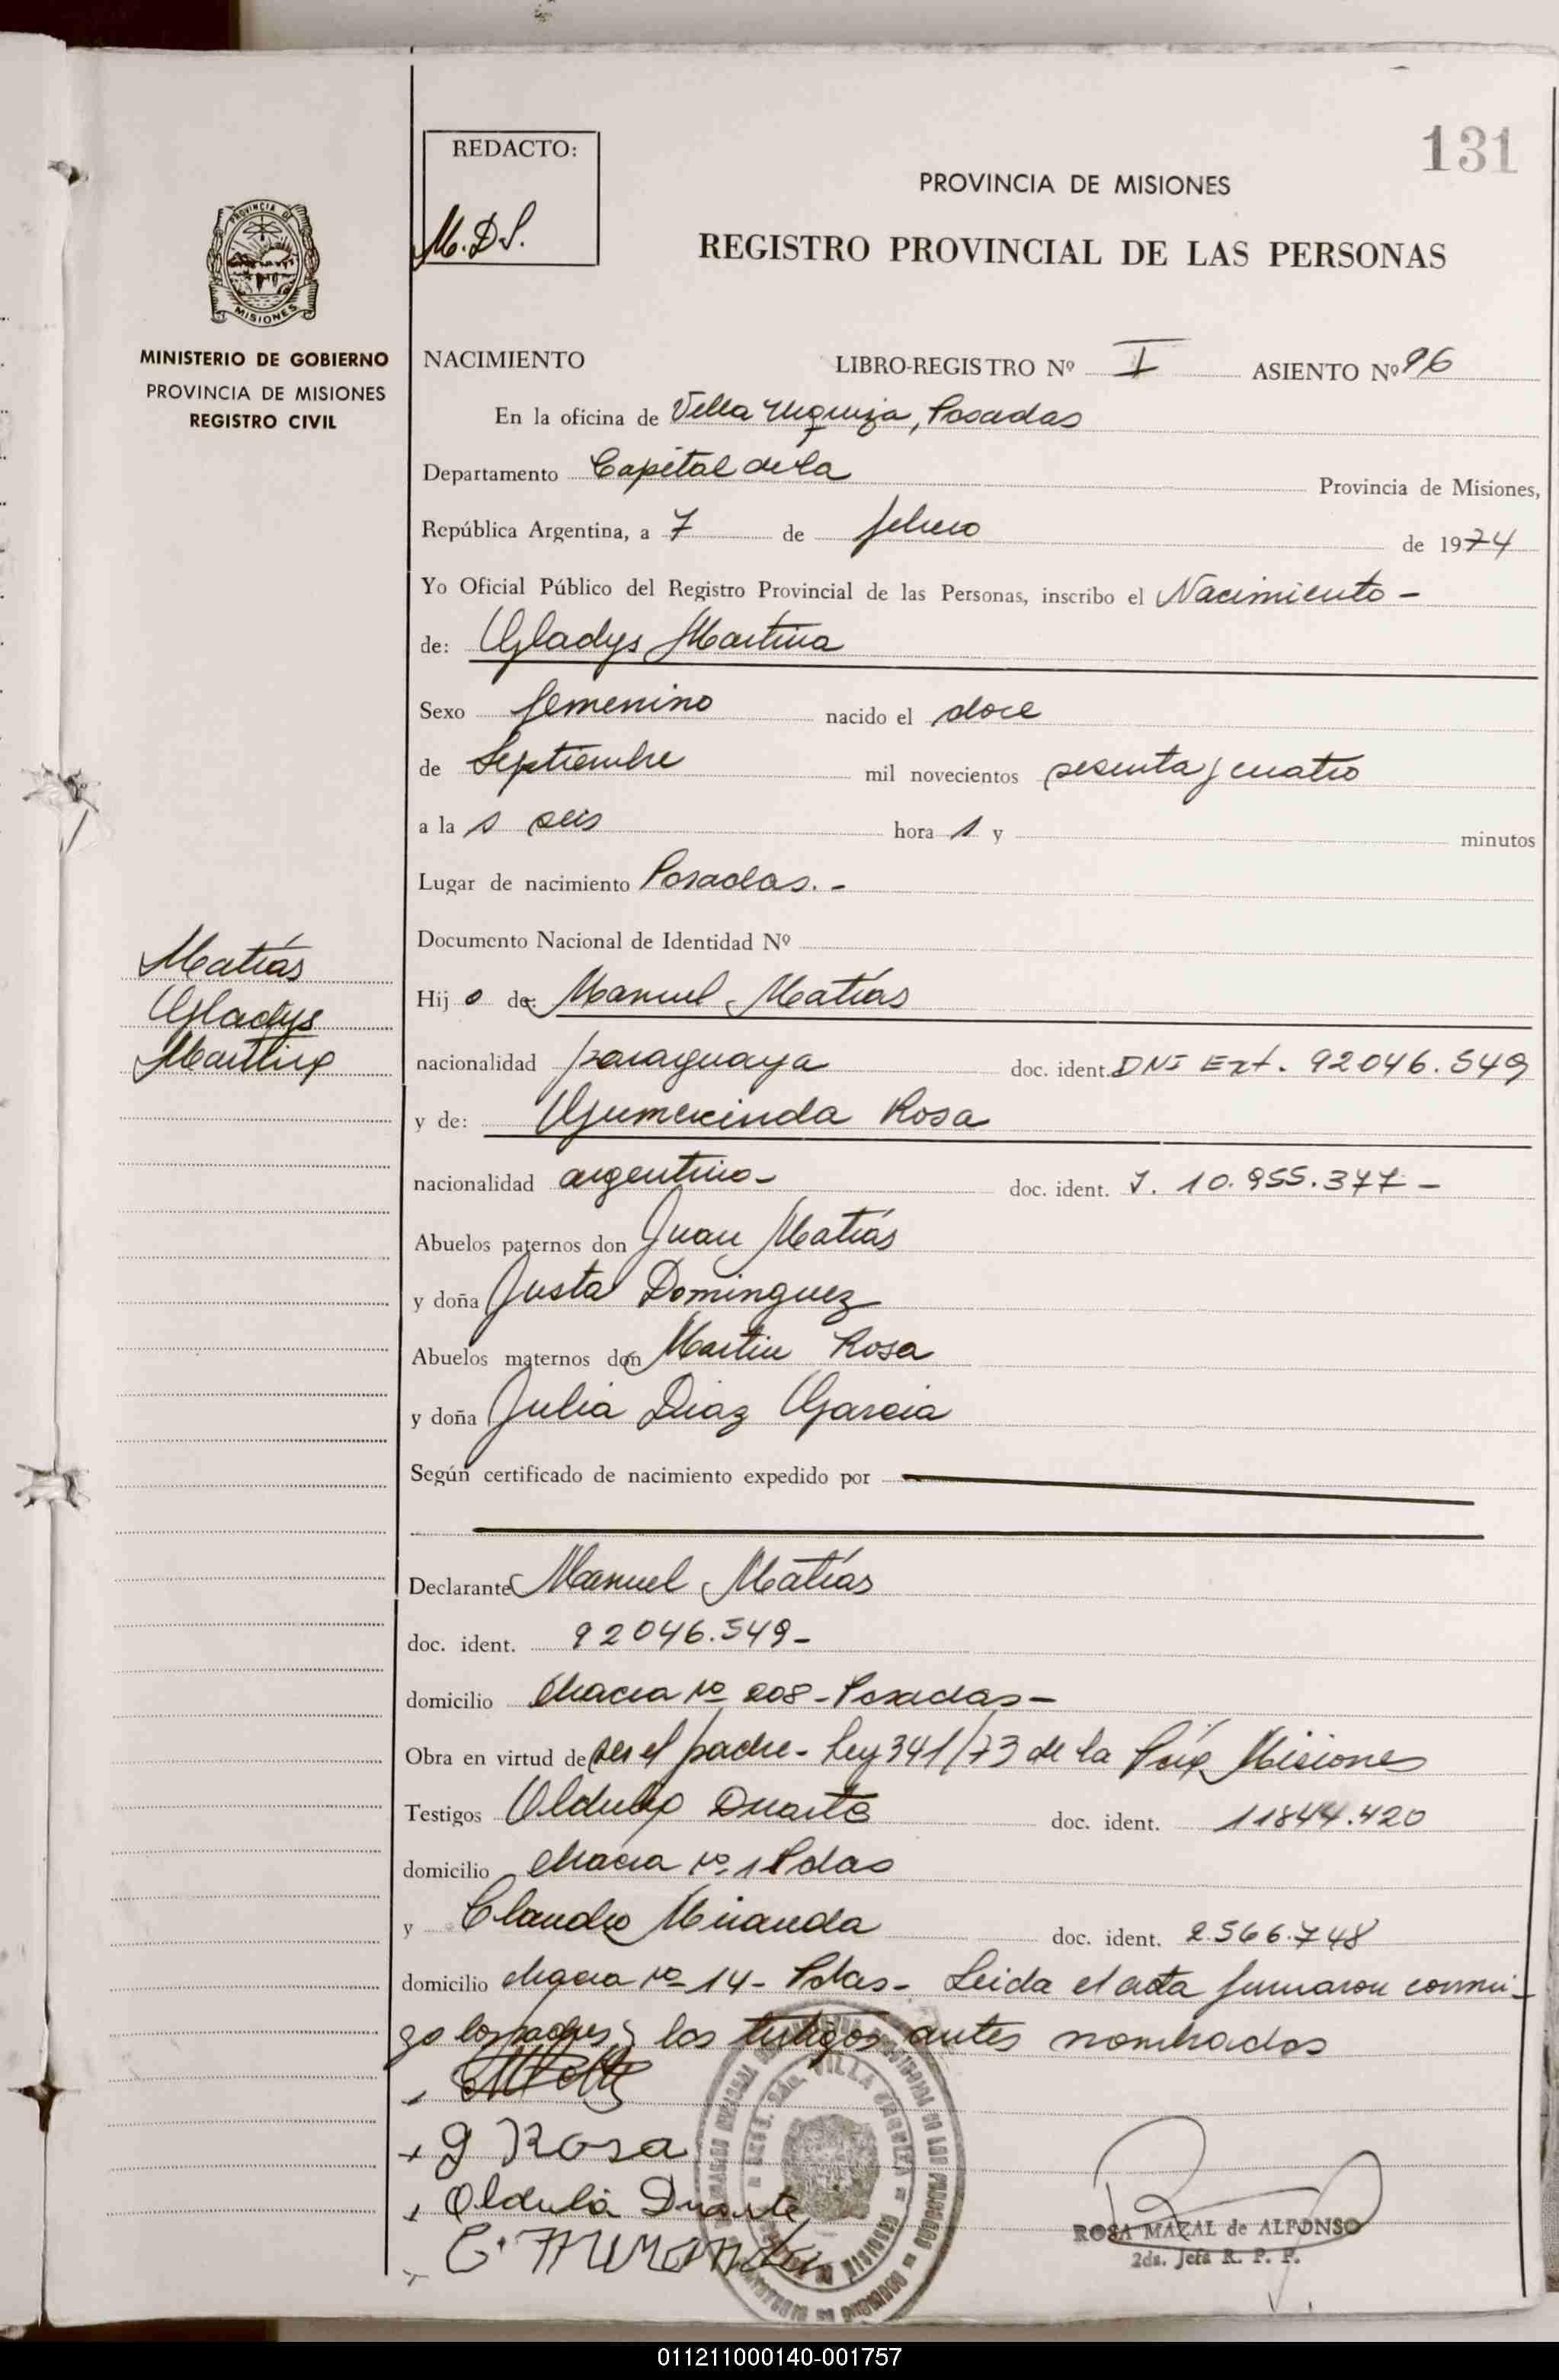 131
REDACTO:
M.D.S.
PROVINCIA DE MISIONES
REGISTRO PROVINCIAL DE LAS PERSONAS
PROVINCIA DE
MISIONES
MINISTERIO DE GOBIERNO
PROVINCIA DE MISIONES
REGISTRO CIVIL
NACIMIENTO LIBRO-REGISTRO Nº I ASIENTO Nº 96
En la oficina de Villa Urquiza, Posadas
Departamento Capital de la Provincia de Misiones,
República Argentina, a 7 de febrero de 1974
Yo Oficial Público del Registro Provincial de las Personas, inscribo el Nacimiento -
de: Gladys Martina
Sexo femenino nacido el doce
de Septiembre mil novecientos sesenta y cuatro
a la s seis hora s y minutos
Lugar de nacimiento Posadas. -
Documento Nacional de Identidad Nº
Matías
Gladys
Martina
Hij o de: Manuel Matías
nacionalidad paraguaya doc. ident. DNI Ext. 92046.549
y de: Gumercinda Rosa
nacionalidad argentina - doc. ident. 10.955.377 -
Abuelos paternos don Juan Matías
y doña Justa Dominguez
Abuelos maternos don Martin Rosa
y doña Julia Diaz Garcia
Según certificado de nacimiento expedido por
Declarante Manuel Matías
doc. ident. 92046.549 -
domicilio chacra nº 208 - Posadas -
Obra en virtud de ser el padre - Ley 341/73 de la Misiones
Testigos Duarte doc. ident. 11844.420
domicilio chacra nº 1 Pdas
y Claudio Miranda doc. ident. 2.566.748
domicilio chacra nº 14 - Pdas - Leida el acta firmaron conmi-
go los padres y los testigos antes nombrados
G Rosa
Duarte
C. Miranda
VILLA URQUIZA
ROSA MAZAL de ALFONSO
2da. Jefa R. P. P.
011211000140-001757